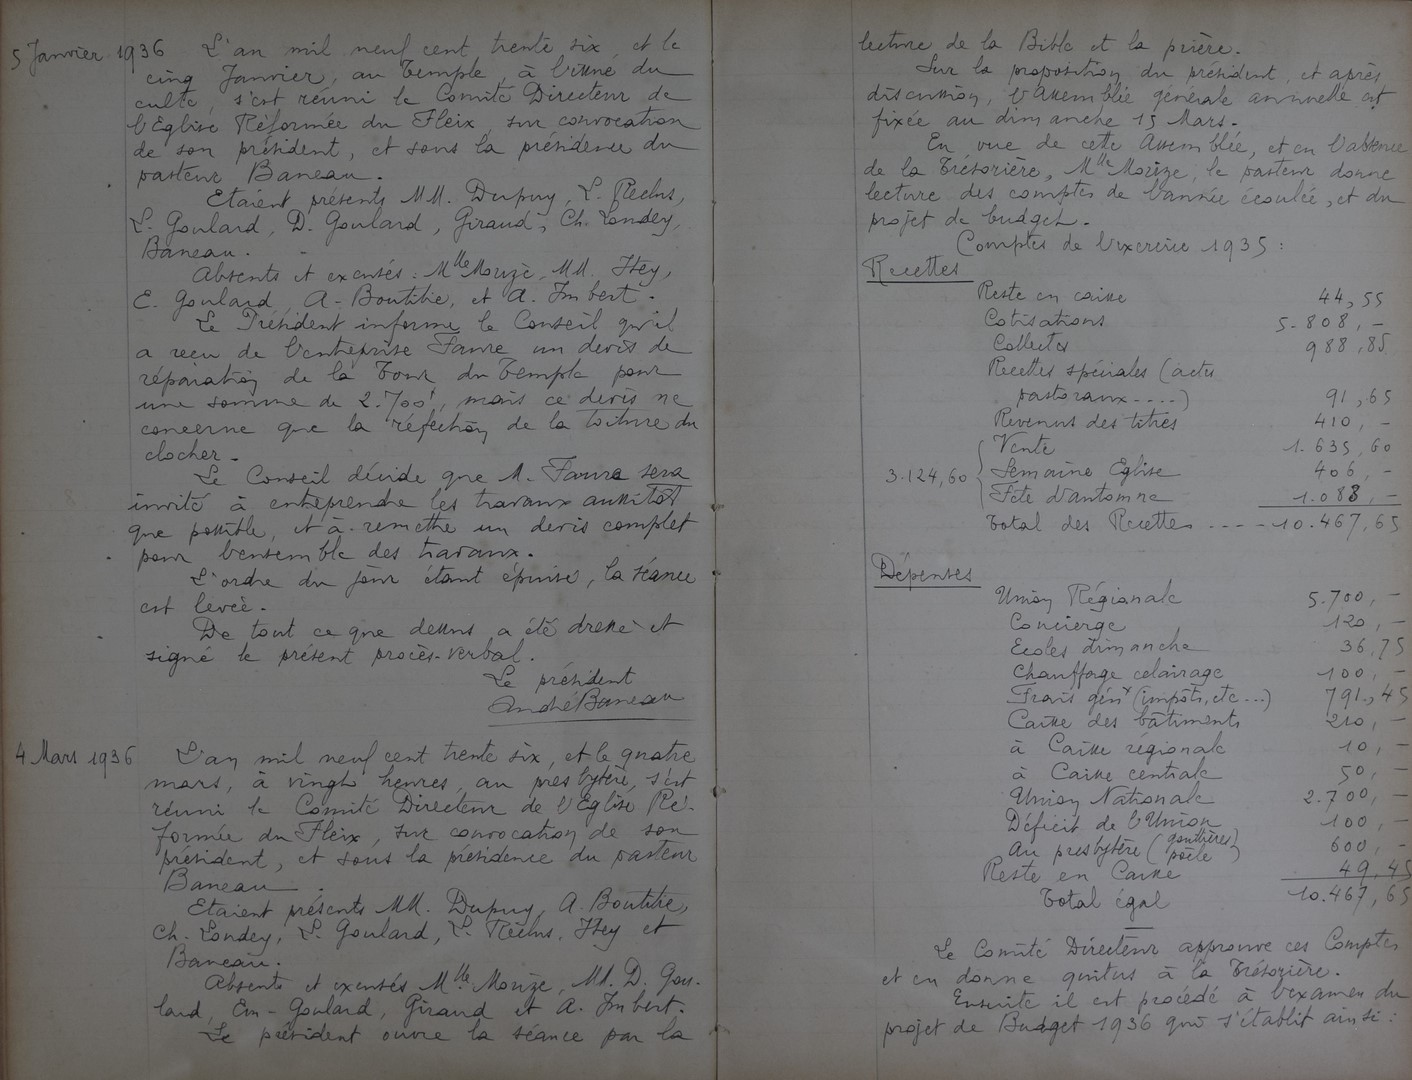 5 Janvier 1936 L'an mil neuf cent trente six, et le
cinq Janvier, au Temple, à l'issue du
culte, s'est réuni le Comité Directeur de
l'Eglise Réformée du Fleix, sur convocation
de son président, et sous la présidence du
pasteur Baneau.
Etaient présents MM. Dupuy, L. Reclus,
L. Goulard, D. Goulard, Giraud, Ch. Londey,
Baneau.
Absents et excusés : Mlle Mouzè, MM. Itey,
E. Goulard, A. Boutitie, et A. Imbert.
Le Président informe le Conseil qu'il
a reçu de l'entreprise Faure un devis de
réparation de la Tour du Temple pour
une somme de 2.700f, mais ce devis ne
concerne que la réfection de la toiture du
clocher.
Le Conseil décide que M. Faure sera
invité à entreprendre les travaux aussitôt
que possible, et à remettre un devis complet
pour l'ensemble des travaux.
L'ordre du jour étant épuisé, la séance
est levée.
De tout ce que dessus a été dressé et
signé le présent procès-verbal.
Le président
André Baneau
4 Mars 1936 L'an mil neuf cent trente six, et le quatre
mars, à vingt heures, au presbytère, s'est
réuni le Comité Directeur de l'Eglise Ré-
formée du Fleix, sur convocation de son
président, et sous la présidence du pasteur
Baneau.
Etaient présents MM. Dupuy, A. Boutitie,
Ch. Londey, L. Goulard, L. Reclus, Itey et
Baneau.
Absents et excusés Mlle Mouzè, MM. D. Gou-
lard, Em. Goulard, Giraud et A. Imbert.
Le président ouvre la séance par la
lecture de la Bible et la prière.
Sur la proposition du président, et après
discussion, l'Assemblée générale annuelle est
fixée au dimanche 15 Mars.
En vue de cette Assemblée, et en l'absence
de la Trésorière, Mlle Mouzè, le pasteur donne
lecture des comptes de l'année écoulée, et du
projet de budget.
Comptes de l'exercice 1935 :
Recettes
Reste en caisse 44,55
Cotisations 5.808,-
Collectes 988,85
Recettes spéciales (actes
pastoraux....) 91,65
Revenus des titres 410,-
Vente 1.635,60
3.124,60 { Semaine Eglise 406,-
Fête d'automne 1.083,-
Total des Recettes ---- 10.467,65
Dépenses
Union Régionale 5.700,-
Concierge 120,-
Ecoles dimanche 36,75
Chauffage eclairage 100,-
Frais génx (impôts, etc...) 791,45
Caisse des bâtiments 210,-
à Caisse régionale 10,-
à Caisse centrale 50,-
Union Nationale 2.700,-
Déficit de l'Union 100,-
Au presbytère (gouttières poêle) 600,-
Reste en Caisse 49,45
Total égal 10.467,65
Le Comité Directeur approuve ces Comptes
et en donne quitus à la Trésorière.
Ensuite il est procédé à l'examen du
projet de Budget 1936 qui s'établit ainsi :